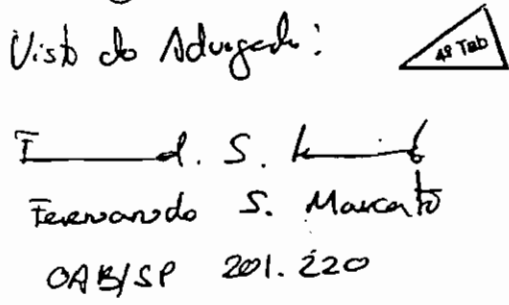 Visto do Advogado:
4º Tab
S.
Fernando S. Marcato
OAB/SP 201.220